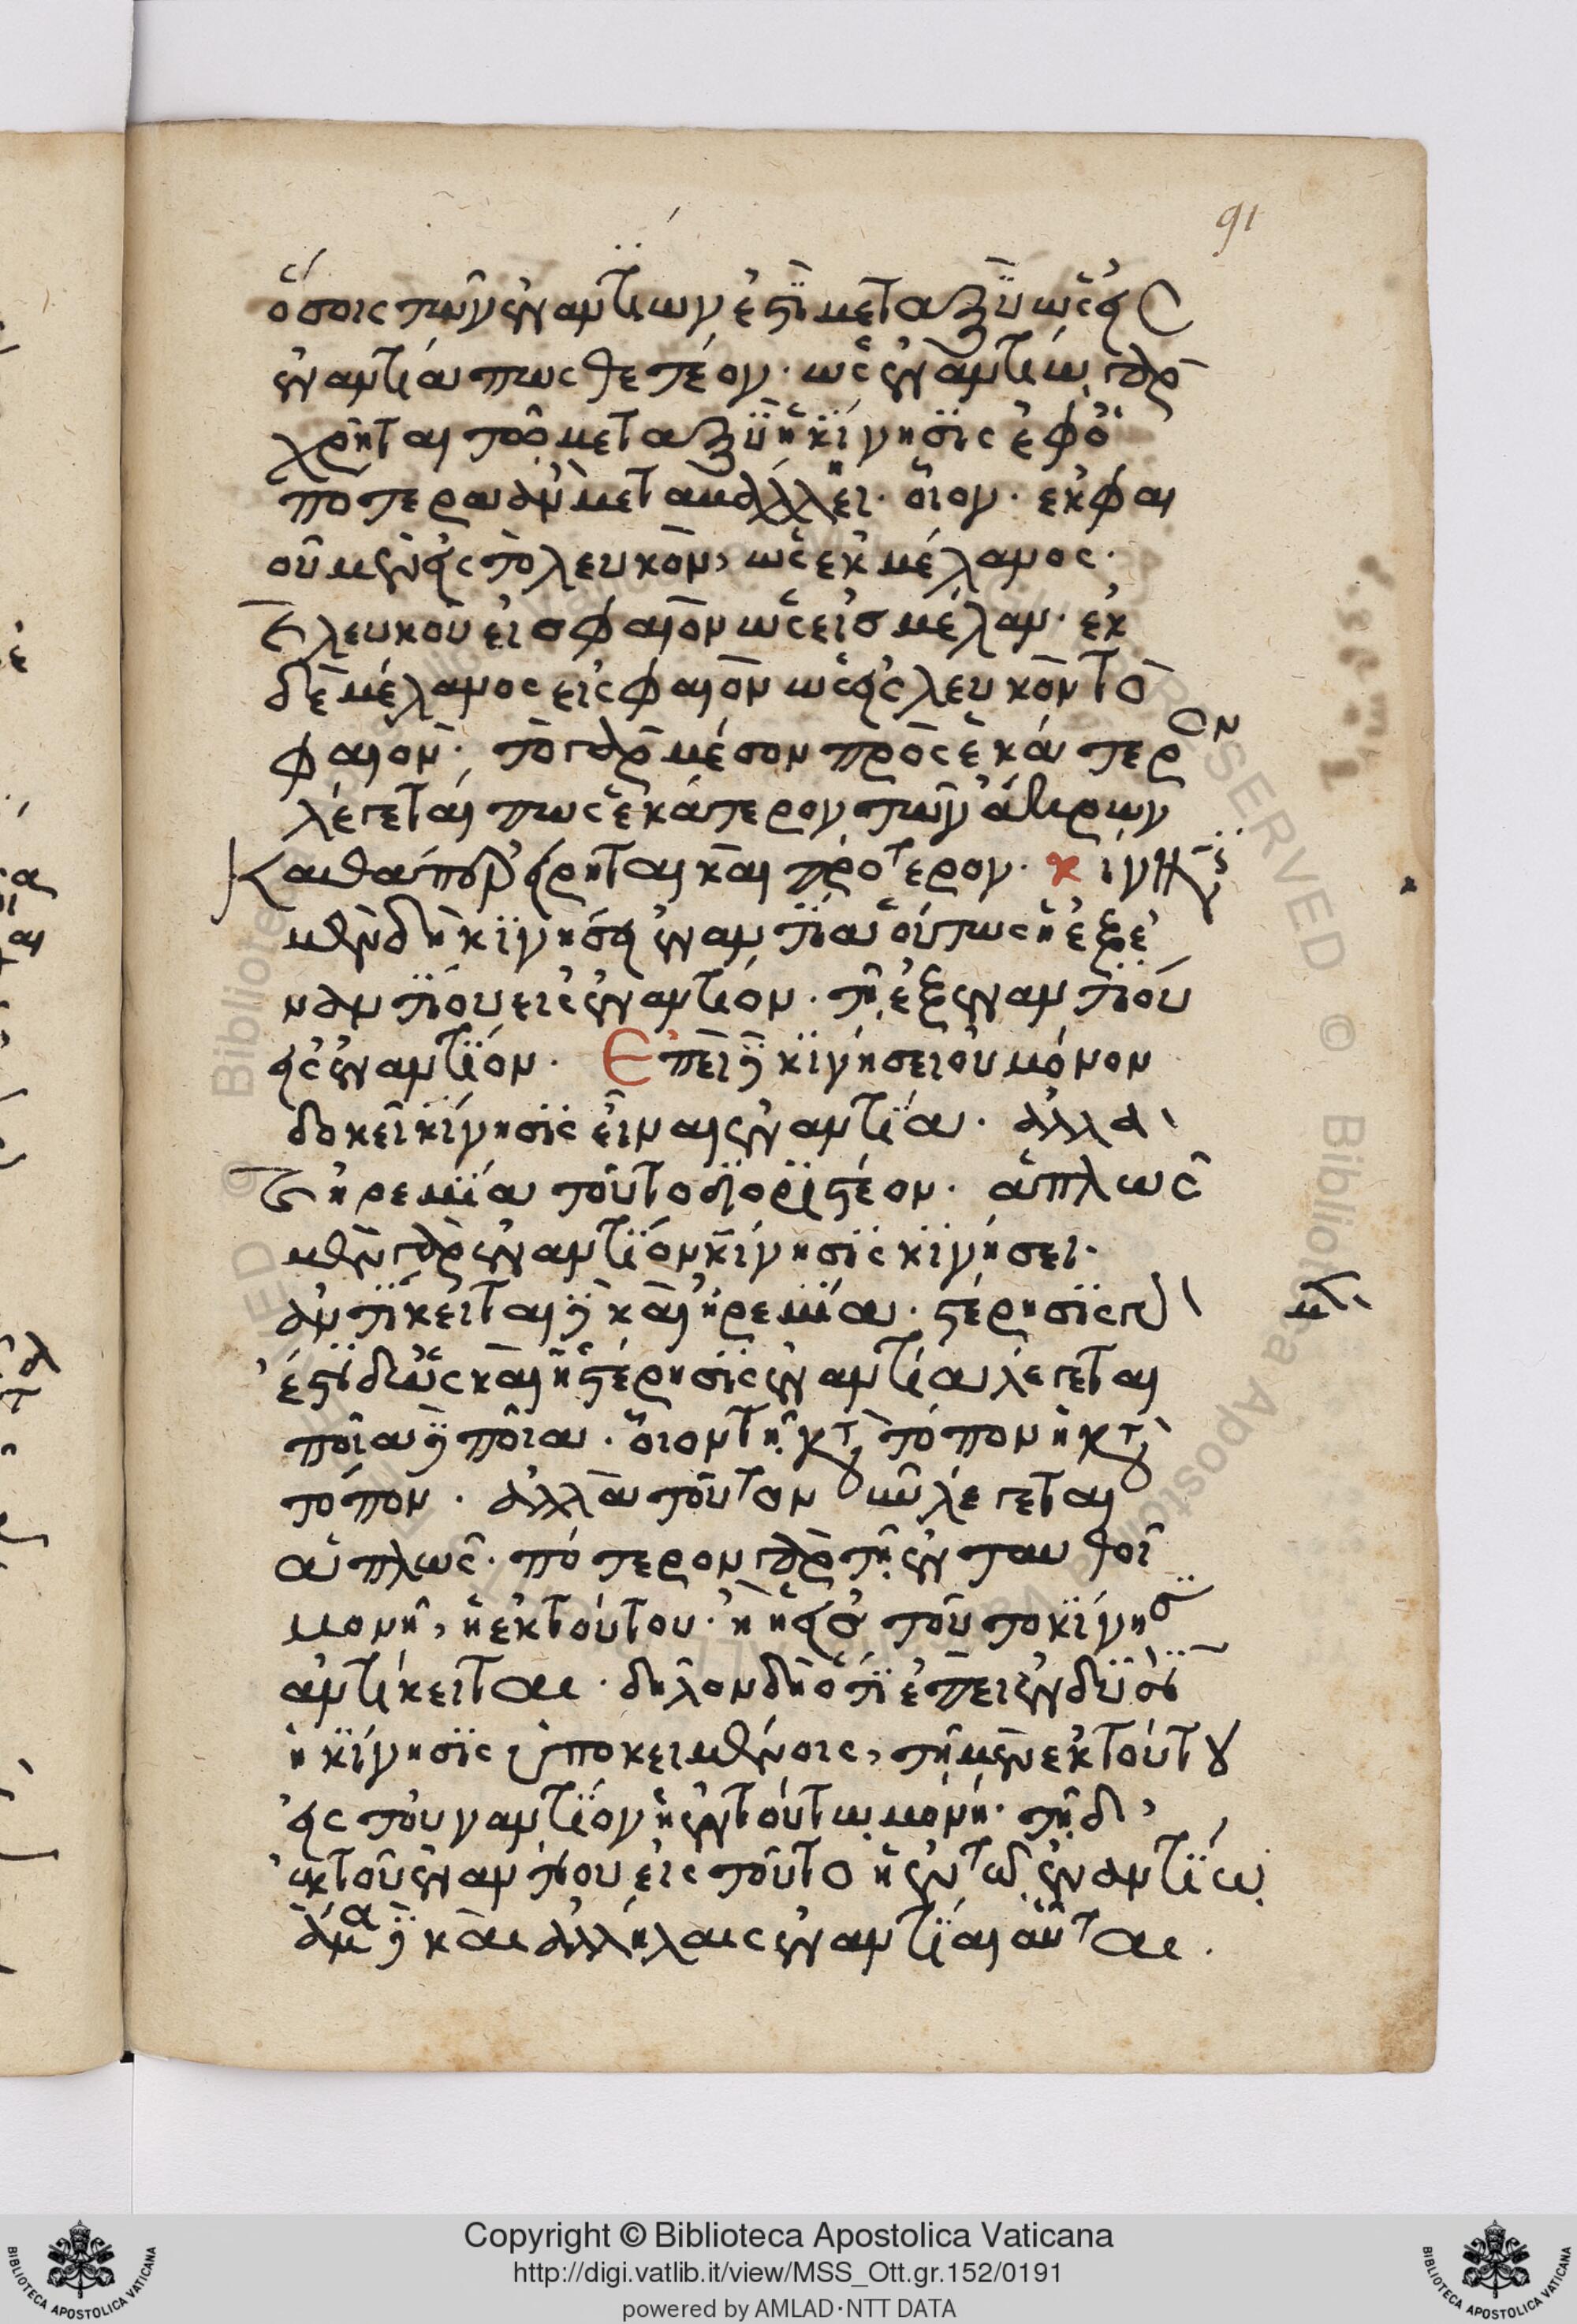 91
ὅσοις τῶν ἐναντίων ἐστὶ μεταξὺ ὡς εἰς
ἐναντία πως θετέον· ὡς ἐναντίω γὰρ
χρῆται τῶ μεταξὺ ἡ κίνησις ἐφ' ὁ
πότερα ἂν μεταβάλλῃ· οἷον· ἐκ φαι
οῦ μὲν εἰς τὸ λευκὸν, ὡς ἐκ μέλανος·
ἐκ λευκοῦ εἰς φαιὸν ὡς εἰς μέλαν· ἐκ
δὲ μέλανος εἰς φαιὸν ὡς εἰς λευκὸν τὸ
φαιὸν· τὸ γὰρ μέσον πρὸς ἑκάτερον
λέγεταί πως ἑκάτερον τῶν ἄκρων
καθάπερ εἴρηται καὶ πρότερον· κίνησις
μὲν δὴ κινήσει ἐναντία οὕτως ἡ ἐξ ἐ
ναντίου εἰς ἐναντίον· τῆ ἐξ ἐναντίου
εἰς ἐναντίον. Ἐπεὶ δὲ κινήσει οὐ μόνον
δοκεῖ κίνησις εἶναι ἐναντία· ἀλλὰ
καὶ ἠρεμία τοῦτο διοριστέον· ἁπλῶς
μὲν γὰρ ἐναντίον κίνησις κινήσει·
ἀντίκειται δὲ καὶ ἠρεμία· στέρησις γὰρ
ἐστιν δ' ὡς καὶ ἡ στέρησις ἐναντία λέγεται
ποῖα δὲ ποία· οἷον τῆ κατὰ τόπον ἡ κατὰ
τόπον· ἀλλὰ τοῦτον νῦν λέγεται
ἁπλῶς· πότερον γὰρ τῆ ἐνταυθοῖ
μονῆ, ἡ ἐκ τούτου· ἢ ἡ εἰς τοῦτο κίνησις
ἀντίκειται· δῆλον δὴ ὅτι ἐπεὶ ἐν δυσὶν
ἡ κίνησις ὑποκειμένοις, τῆ μὲν ἐκ τούτου
εἰς τοὐναντίον ἡ ἐν τούτω μονή· τῆ δ'
ἐκ τοῦ ἐναντίου εἰς τοῦτο ἡ ἐν τῶ ἐναντίω
ἅμα δὲ καὶ ἀλλήλαις ἐναντίαι αὗται.
Copyright © Biblioteca Apostolica Vaticana
http://digi.vatlib.it/view/MSS_Ott.gr.152/0191
powered by AMLAD·NTT DATA